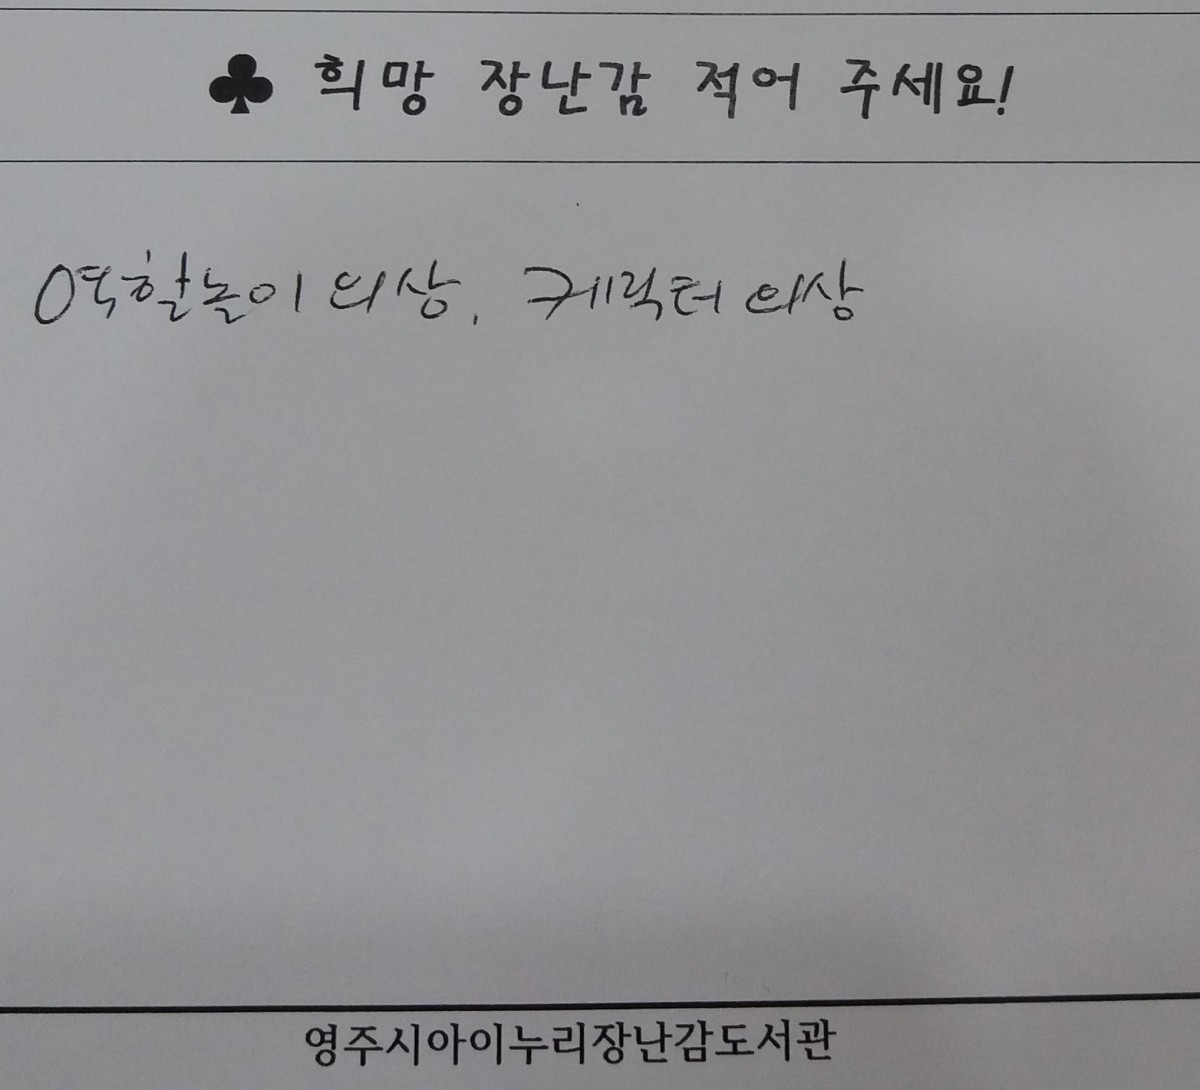 ♣ 희망 장난감 적어 주세요!
역할놀이 의상, 케릭터 의상
영주시아이누리장난감도서관